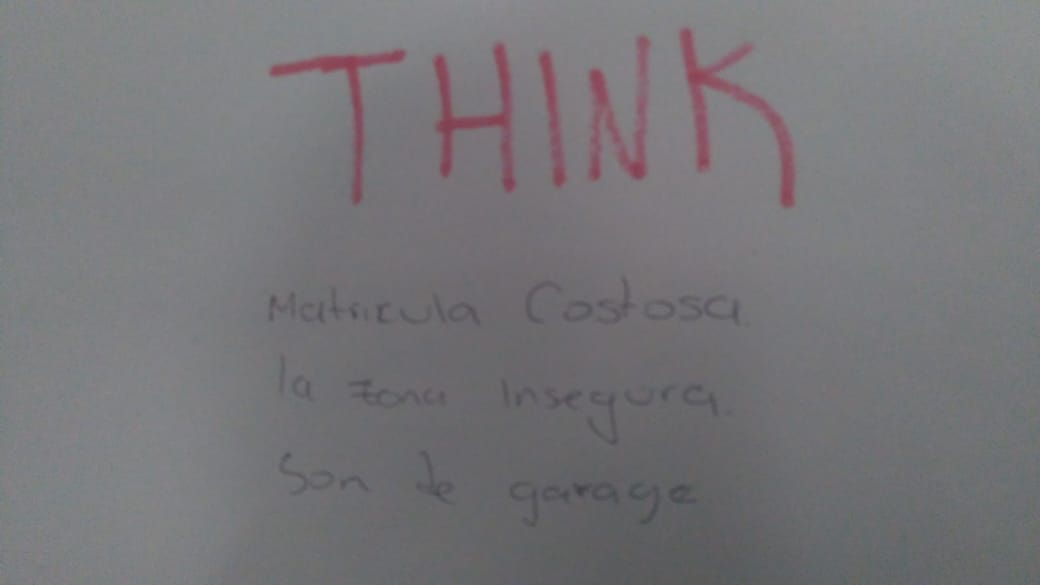 THINK
Matricula Costosa.
la zona Insegura.
Son de garage